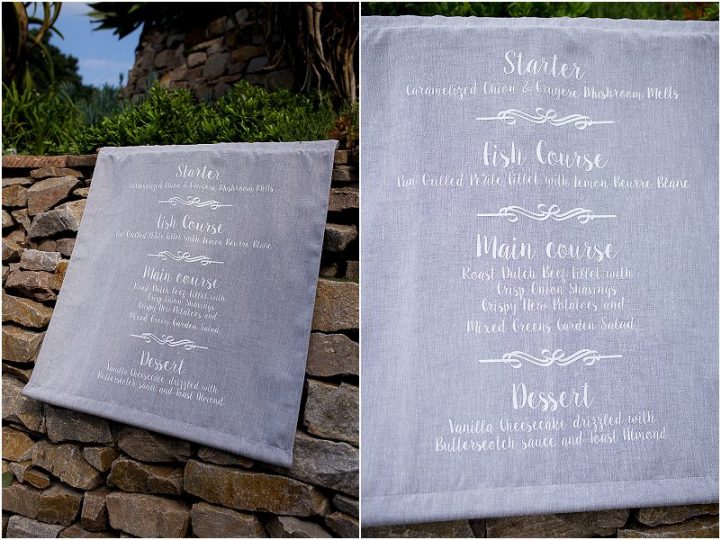 Starter
Caramelized Onion & Gruyere Mushroom Melts
Fish Course
Pan Grilled Petite Fillet with Lemon Beurre Blanc
Main course
Roast Dutch Beef fillet with
Crisp Onion Shavings
Crispy Hero Potatoes and
Mixed Greens Garden Salad
Dessert
Vanilla Cheesecake drizzled with
Butterscotch sauce and Toast Almond
Starter
Caramelized Onion & Gruyere Mushroom Melts
Fish Course
Pan Grilled Petite Fillet with Lemon Beurre Blanc
Main course
Roast Dutch Beef fillet with
Crisp Onion Shavings
Crispy Hero Potatoes and
Mixed Greens Garden Salad
Dessert
Vanilla Cheesecake drizzled with
Butterscotch sauce and Toast Almond